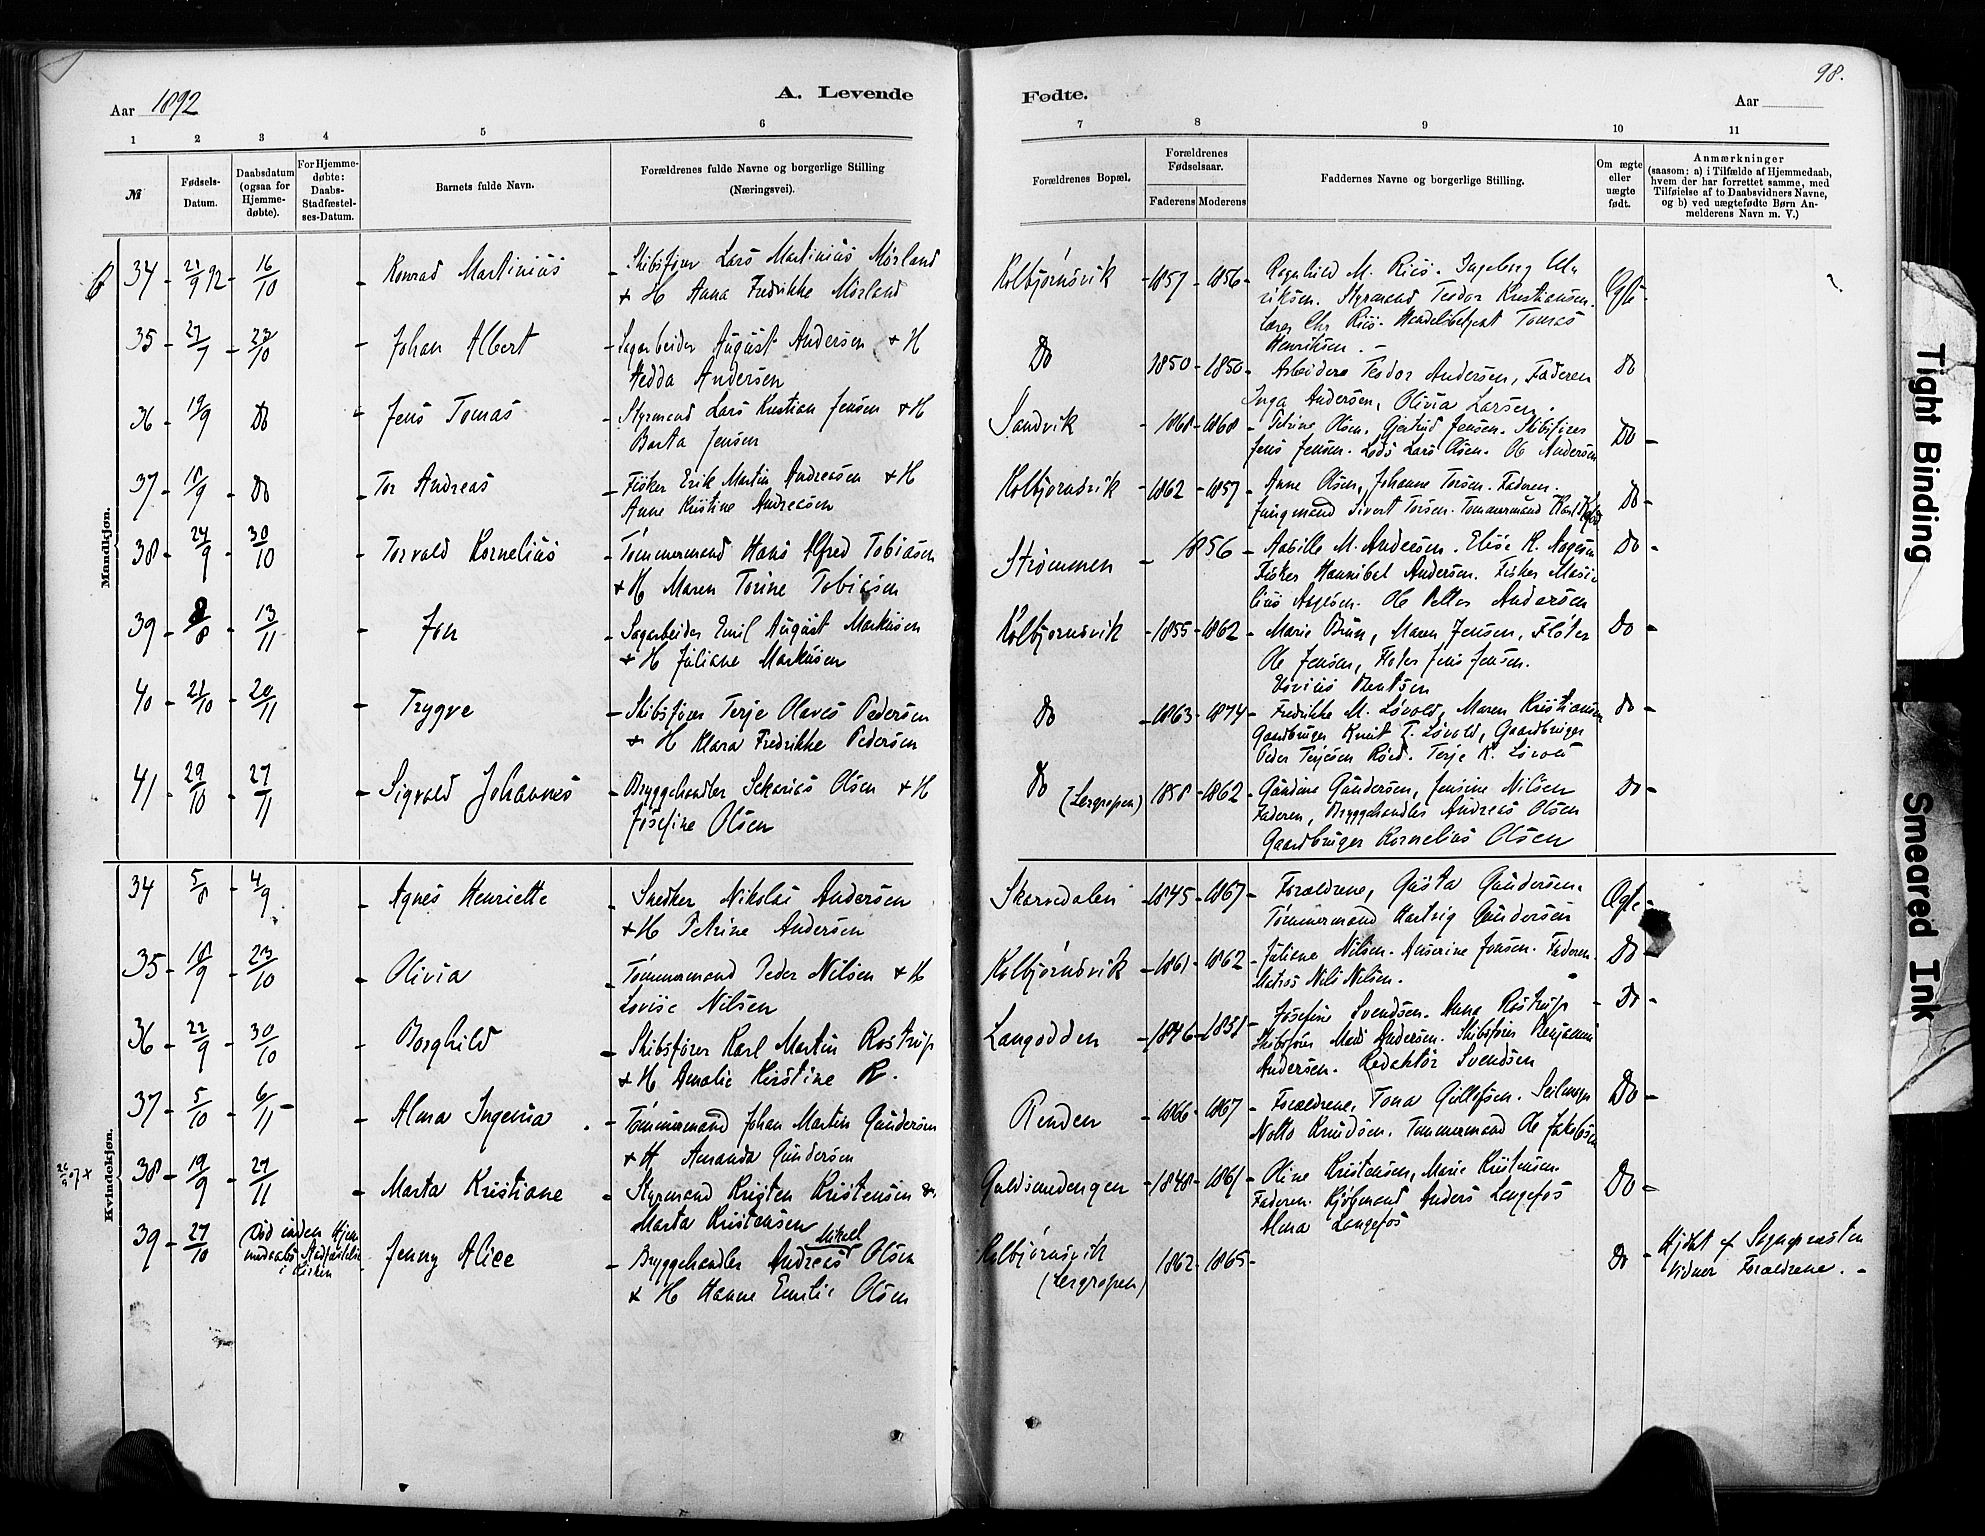 98.
Aar 1892
A. Levende
Fødte.
Aar
1 2 3 4 5 6 7 8 9 10 11
№
Fødsels-
Datum.
Daabsdatum
(ogsaa for
Hjemme-
døbte).
For Hjemme-
døbte:
Daabs-
Stadfæstel-
ses-Datum.
Barnets fulde Navn.
Forældrenes fulde Navne og borgerlige Stilling
(Næringsvei).
Forældrenes Bopæl.
Forældrenes
Fødselsaar.
Faderens Moderens
Faddernes Navne og borgerlige Stilling.
Om ægte
eller
uægte
født.
Anmærkninger
(saasom: a) i Tilfælde af Hjemmedaab,
hvem der har forrettet samme, med
Tilføielse af to Daabsvidners Navne,
og b) ved uægtefødte Børn An-
melderens Navn m. V.)
Mandkjøn.
34 - 21/9 92 - 16/10 - Konrad Martinius - Skibsfører Lars Martinius Mørland
+ H Anna Fredrikke Mørland
Kolbjørnsvik - 1857 - 1856 - Ragnhild M. Riis. Ingeborg
Styrmand Teodor Kristiansen.
Lærer Chr Riis. Handelsbetjent Tomas
Henriksen. -
Ægte
35 - 27/9 - 23/10 - Johan Albert - Sagarbeider August Andersen + H
Hedda Andersen
Do 1850 - 1850 - Arbeidere Teodor Andersen, Faderen
Inga Andersen, Olivia Larsen.
Do
36 - 19/9 Do - Jens Tomas - Styrmand Lars Kristian Jensen + H
Berta Jensen
Sandvik - 1868 - 1868 - Petrine Olsen. Gjertrud Jensen. Skibsfører
Jens Jensen. Lods Lars Olsen. Ole Andersen
Do -
37 - 18/9 - Do - Tor Andreas - Fisker Erik Martin Andreasen + H
Anne Kristine Andreasen
Kolbjørnsvik - 1862 - 1857 - Anne Olsen, Johanne Torsen. Faderen.
Jungmand Sivert Torsen. Tømmermand Karl
Do -
38 - 24/9 - 30/10 - Torvald Kornelius - Tømmermand Hans Alfred Tobiasen
+ H Maren Torine Tobiasen
Strømmen - 1856 - M. Andersen. Elise K. Aagesen
Fisker Hannibal Andersen. Fisker
Ole Petter Andersen
Do -
39 - /8 - 13/11 - Jon - Sagarbeider Emil August Markusen
+ H Juliane Markusen
Kolbjørnsvik - 1855 - 1862 - Marie Brun, Maren Jensen, Fløter
Ole Jensen, Fløter Jens Jensen.
Bentsen
Do -
40 - 21/10 - 20/11 - Trygve - Skibsfører Terje Olaves Pedersen
+ H Klara Fredrikke Pedersen
Do - 1863 - 1874 - Fredrikke M. Løvold, Maren Kristiansen
Gaardbruger Knut T. Løvold, Gaardbruger
Peder Terjesen Røed. Terje K. Løvold
Do -
41 - 29/10 - 27/11 - Sigvald Johannes - Bryggehandler Sekarias Olsen + H
Josefine Olsen
Do (Lergropen) 1858 - 1862 - Gundine Gundersen, Jensine Nilsen
Faderen, Bryggehandler Andreas Olsen
Gaardbruger Kornelius Olsen
Do -
Kvindekjøn.
34 5/8 - 4/9 - Agnes Henriette - Snedker Nikolai Andersen
+ H Petrine Andersen
Skarvedalen - 1845 - 1867 - Forældrene, Gusta Gundersen.
Tømmermand Hartvig Gundersen
Ægte -
35 - 18/9 - 23/10 - Olivia - Tømmermand Peder Nilsen + H
Lovise Nilsen
Kolbjørnsvik - 1861 - 1862 - Juliane Nilsen. Jensen. Faderen.
Matros Nils Nilsen.
Do -
36 - 22/9 - 30/10 - Borghild - Skibsfører Karl Martin Rostrup
+ H Amalie Kirstine R.
Langodden - 1846 - 1851 - Josefine Svendsen. Anna Rostrup
Skibsfører Mads Andersen. Skibsfører Benjamin
Andersen. Redaktør Svendsen
- Do -
37 - 5/10 - 6/11 - Alma Ingenia - Tømmermand Johan Martin Gundersen
+ H Amanda Gundersen
Renden - 1866 - 1867 - Forældrene, Tona Gullofsen. Seilmager
Notto Knudsen. Tømmermand Ole Jakobsen
Do -
38 - 19/9 - 27/11 - Marta Kristiane - Styrmand Kristen Kristensen &
Marta Kristensen
Guldsmedengen - 1848 - 1861 - Oline Kristensen, Marie Kristensen.
Faderen. Kjøbmand Anders Langefos
Alma Langefos
Do -
39 - 27/10 - Død inden Hjem-
medaabs Stadfæstelse
i Kirken
Jenny Alice - Bryggehandler Andreas Mikael Olsen
+ H Hanne Emilie Olsen
Kolbjørnsvik
(Lergropen) 1862 - 1865 -
Do - Hjdbt af Sognepresten
Vidner Forældrene. -
Tight Binding
Smeared Ink